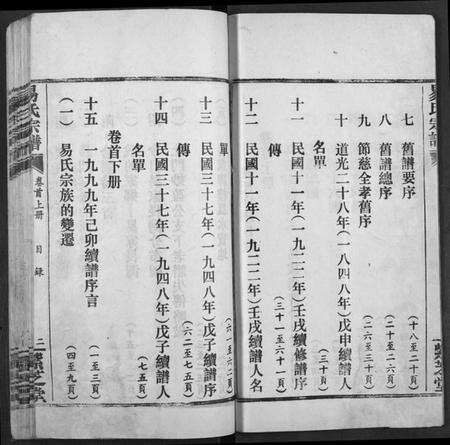 易氏宗譜
七 舊譜要序
(十八至二十頁)
八 舊譜總序
(二十至二六頁)
九 節慈全孝舊序
(二六至三十頁)
十 道光二十八年(一八四八年)戊申續譜人
名單
(三十頁)
十一 民國十一年(一九二二年)壬戌續修譜序
(三十一至六十一頁)
十二 民國十一年(一九二二年)壬戌續譜人名
單
(六一至六二頁)
十三 民國三十七年(一九四八年)戊子續譜序
傳
(六二至七五頁)
十四 民國三十七年(一九四八年)戊子續譜人
名單
(七五頁)
卷首下册
十五 一九九九年己卯續譜序言
(一至三頁)
(一) 易氏宗族的變遷
(四至九頁)
易氏宗譜
卷首上册
目録
二